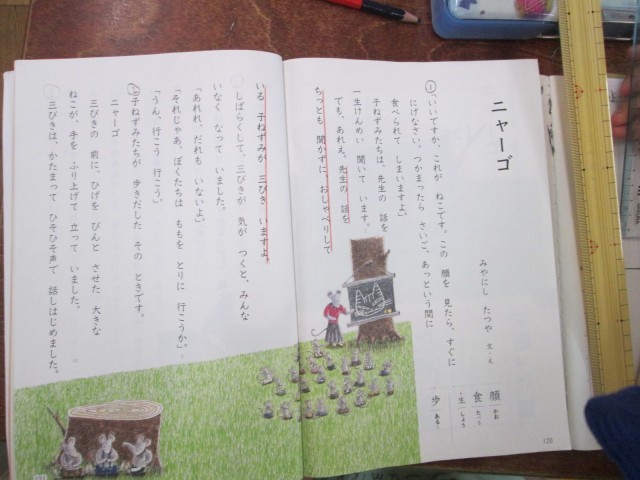 ニャーゴ
みやにし たつや 文・え
①「いいですか、これが ねこです。この 顔を 見たら、すぐに
にげなさい。つかまったら さいご、あっという間に
食べられて しまいますよ。」
子ねずみたちは、先生の 話を
一生けんめい 聞いて います。
でも、あれえ、先生の 話を
ちっとも 聞かずに、おしゃべりして
いる 子ねずみが 三びき いますよ。
しばらくして、三びきが 気が つくと、みんな
いなく なって いました。
「あれれ、だれも いないよ。」
「それじゃあ、ぼくたちは ももを とりに 行こうか。」
「うん、行こう 行こう。」
子ねずみたちが 歩きだした その ときです。
ニャーゴ
三びきの 前に、ひげを ぴんと させた 大きな
ねこが、手を ふり上げて 立って いました。
三びきは、かたまって ひそひそ声で 話しはじめました。
顔 かお
食 たべる
・生 しょう
歩 あるく
120